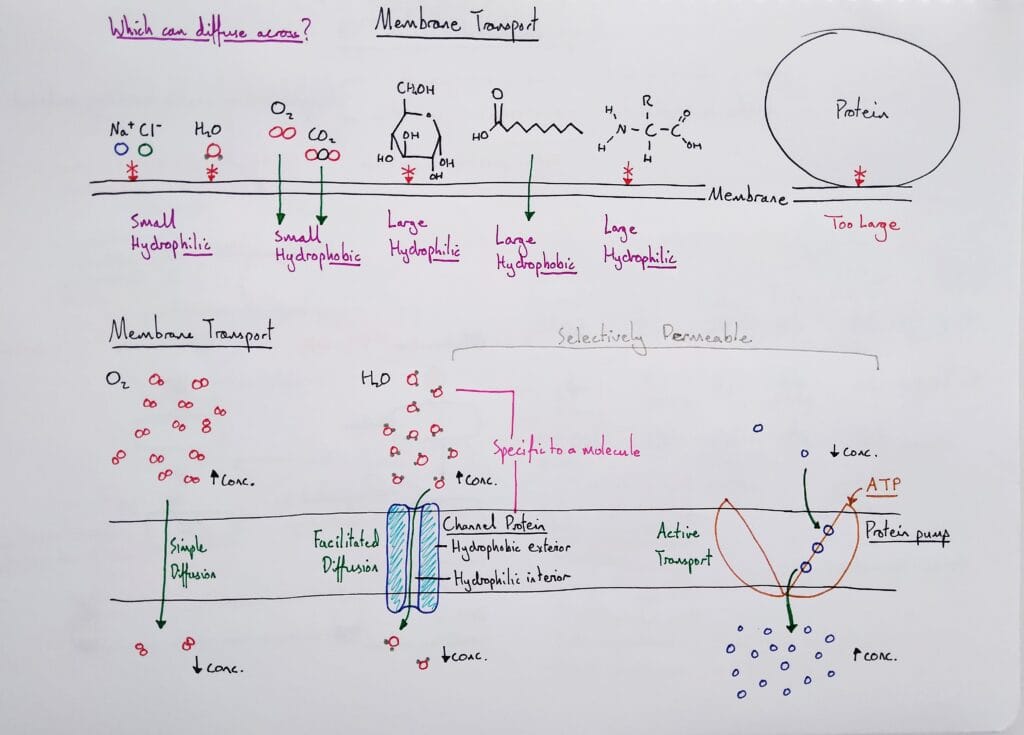 Which can diffuse across?
Membrane Transport
Na⁺ Cl⁻
H₂O
O₂
CO₂
CH₂OH
OH
HO
OH
OH
O
HO
H
N
H
R
C
H
C
O
OH
Protein
Membrane
Small
Hydrophilic
Small
Hydrophobic
Large
Hydrophilic
Large
Hydrophobic
Large
Hydrophilic
Too Large
Membrane Transport
Selectively Permeable
O₂
↑ Conc.
Simple
Diffusion
↓ Conc.
H₂O
↑ Conc.
Specific to a molecule
Facilitated
Diffusion
Channel Protein
Hydrophobic exterior
Hydrophilic interior
↓ Conc.
↓ Conc.
ATP
Active
Transport
Protein pump
↑ Conc.